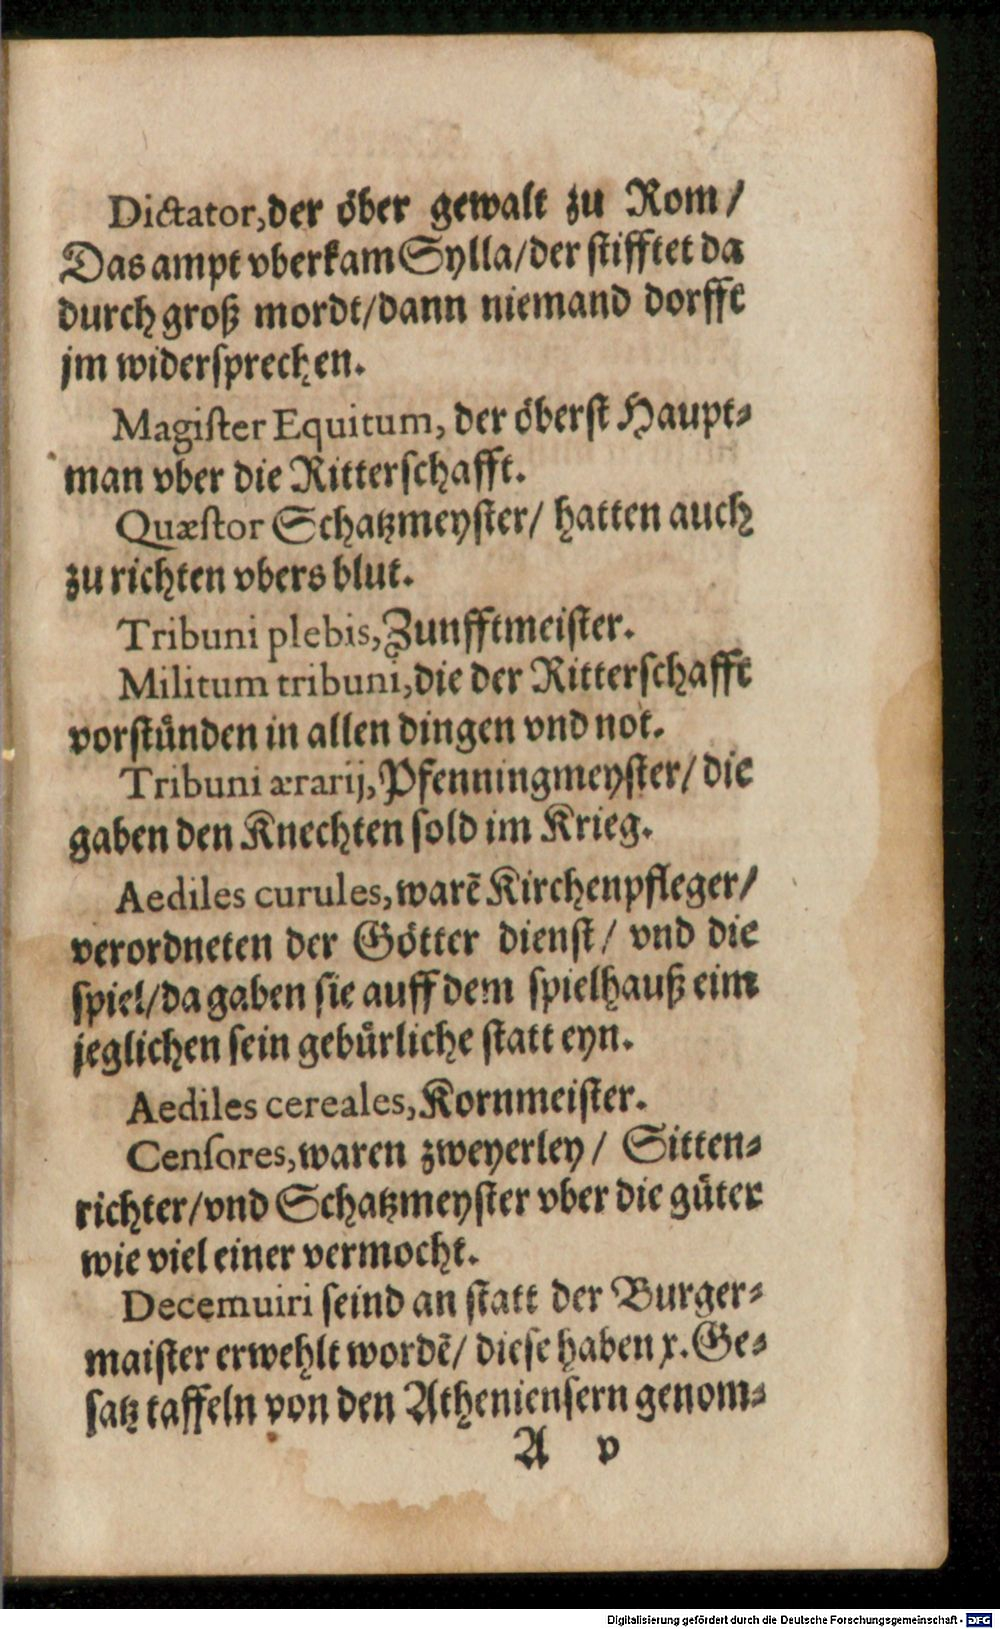 Dictator, der öber gewalt zu Rom /
Das ampt vberkam Sylla/der stifftet da
durch groß mordt/dann niemand dorfft
jm widersprechen.
Magiſter Equitum, der öberst Haupt⸗
man vber die Ritterschafft.
Quæſtor Schatzmeyster/ hatten auch
zu richten vbers blut.
Tribuni plebis, Zunfftmeister.
Militum tribuni, die der Ritterschafft
vorstünden in allen dingen vnd not.
Tribuni ærarij, Pfenningmeyster/ die
gaben den Knechten sold im Krieg.
Aediles curules, warẽ Kirchenpfleger/
verordneten der Götter dienst/ vnd die
spiel/da gaben sie auff dem spielhauß eim
jeglichen sein gebürliche statt eyn.
Aediles cereales, Kornmeister.
Cenſores, waren zweyerley/ Sitten⸗
richter/vnd Schatzmeyster vber die güter
wie viel einer vermocht.
Decemuiri seind an statt der Burger⸗
maister erwehlt wordẽ/ diese haben x. Ge⸗
satz taffeln von den Atheniensern genom⸗
A v
Digitalisierung gefördert durch die Deutsche Forschungsgemeinschaft - DFG